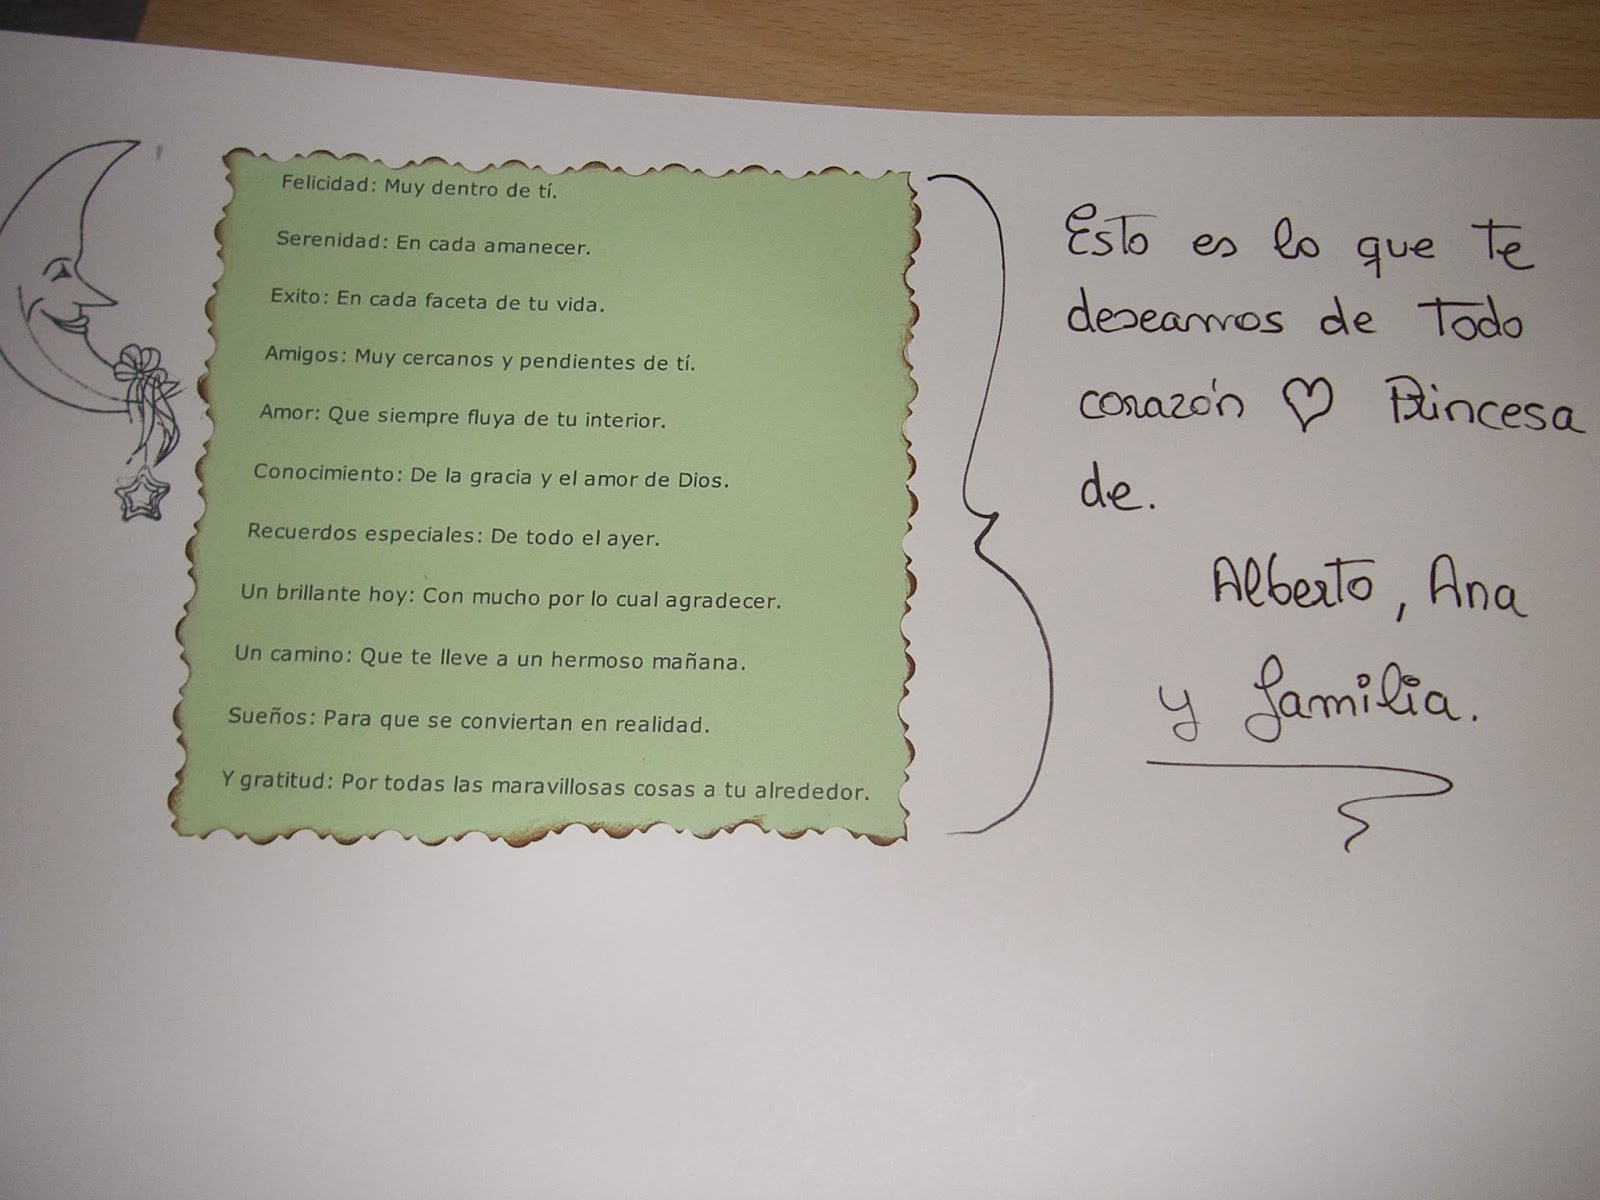 Felicidad: Muy dentro de tí.
Serenidad: En cada amanecer.
Exito: En cada faceta de tu vida.
Amigos: Muy cercanos y pendientes de tí.
Amor: Que siempre fluya de tu interior.
Conocimiento: De la gracia y el amor de Dios.
Recuerdos especiales: De todo el ayer.
Un brillante hoy: Con mucho por lo cual agradecer.
Un camino: Que te lleve a un hermoso mañana.
Sueños: Para que se conviertan en realidad.
Y gratitud: Por todas las maravillosas cosas a tu alrededor.
Esto es lo que te
deseamos de Todo
corazón ♡ Princesa
de.
Alberto, Ana
y familia.